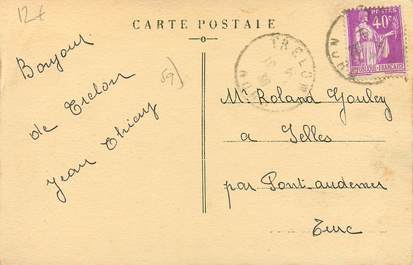 12€
CARTE POSTALE
Bonjour
de Trelon
Jean Thiery
59)
TRELON
NORD
POSTES
40c
Mr Roland Gouley
a Selles
par Pont-audemer
Eure